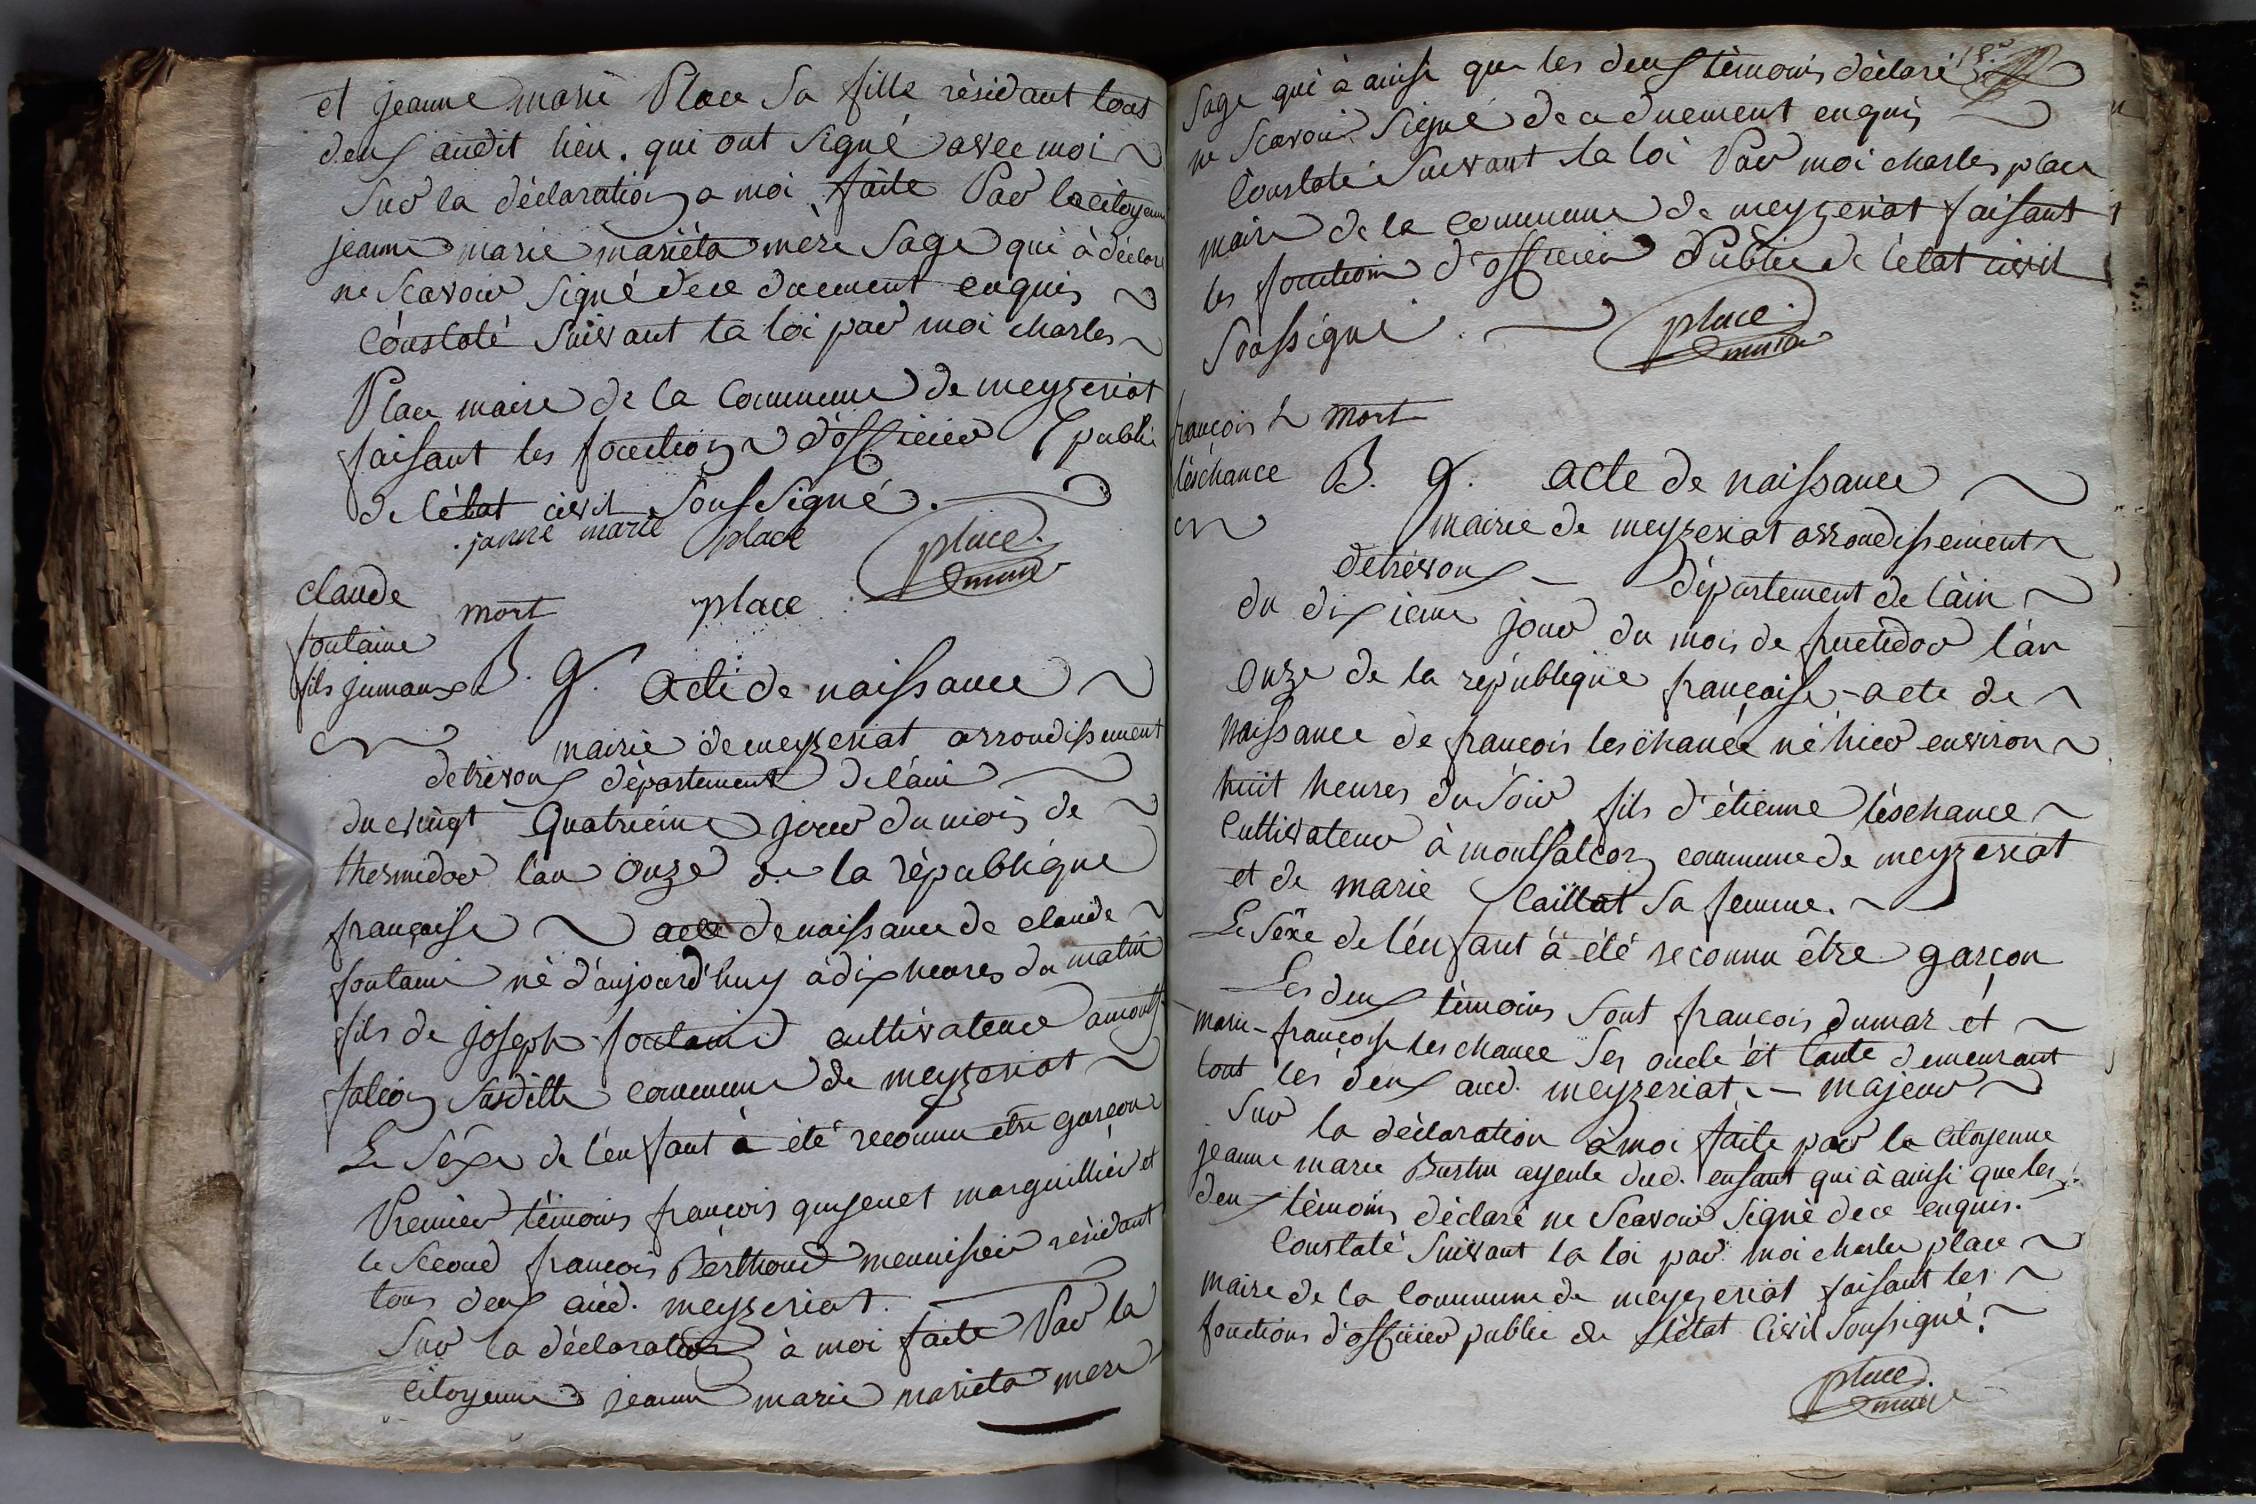 et jeanne marie Place Sa fille résidant tous
deux audit lieu. qui ont Signé avec moi
Sur la déclaration a moi faite Par la citoyenne
jeanne marie mariéta mère Sage qui à déclaré
ne Scavoir Signé dece duement enquis
Constaté Suivant la loi par moi charles
Place maire de la Commune de meyzeriat
faisant les fonction d'officier public
de l'état civil Soussigné.
janne marie place place. maire
place
claude
fontaine
fils jumaux
mort
B. g. Acte de naissance
mairie de meyzeriat arrondissement
detrévoux département de l'ain
du vingt Quatrieme jour du mois de
thermidor l'an onze de la république
française acte de naissance de claude
fontaine né d'aujourd'huy à dix heures du matin
fils de joseph fontaine cultivateur amont
falcon Susditte commune de meyzeriat
Le Séxe de l'enfant à été reconnu etre garçon
Premier témoins françois guysenet marguillier et
le Second françois Bérthoud menuisier résidant
tous deux aud. meyzeriat.
Sur la déclaration à moi faite Par la
Citoyenne jeanne marie marieta mere
Sage qui à ainsi que les deux témoins déclaré
ne Scavoir Signé dece duement enquis
Constaté Suivant la loi Par moi charles place
maire de la commune de meyzeriat faisant
les fonction d'officier Public de l'état civil
Soussigné. place. maire
françois mort
léschance B. g. acte de naissance
mairie de meyzeriat arrondissement
detrévoux — département de l'ain
du dixieme jour du mois de fructidor l'an
onze de la république française - acte de
naissance de françois leschance né hier environ
huit heures du Soir fils d'étienne léschance
Cultivateur à montfalcon commune de meyzeriat
et de marie Caillat Sa femme.
Le Séxe de l'énfant à été reconnu être garçon
Les deux témoins Sont françois dumar et
marie-françoise leschance Ses oncle ét tante demeurant
tout les deux aud. meyzeriat — majeur
Sur la déclaration àmoi faite par la Citoyenne
jeanne marie Burtin ayeule dud. enfant qui à ainsi que les
deux témoins déclaré ne Scavoir Signé dece enquis.
Constaté Suivant la loi par moi charles place
maire de la Commune de meyzeriat faisant les
fonctions d'officier public de l'état Civil Soussigné.
place. maire